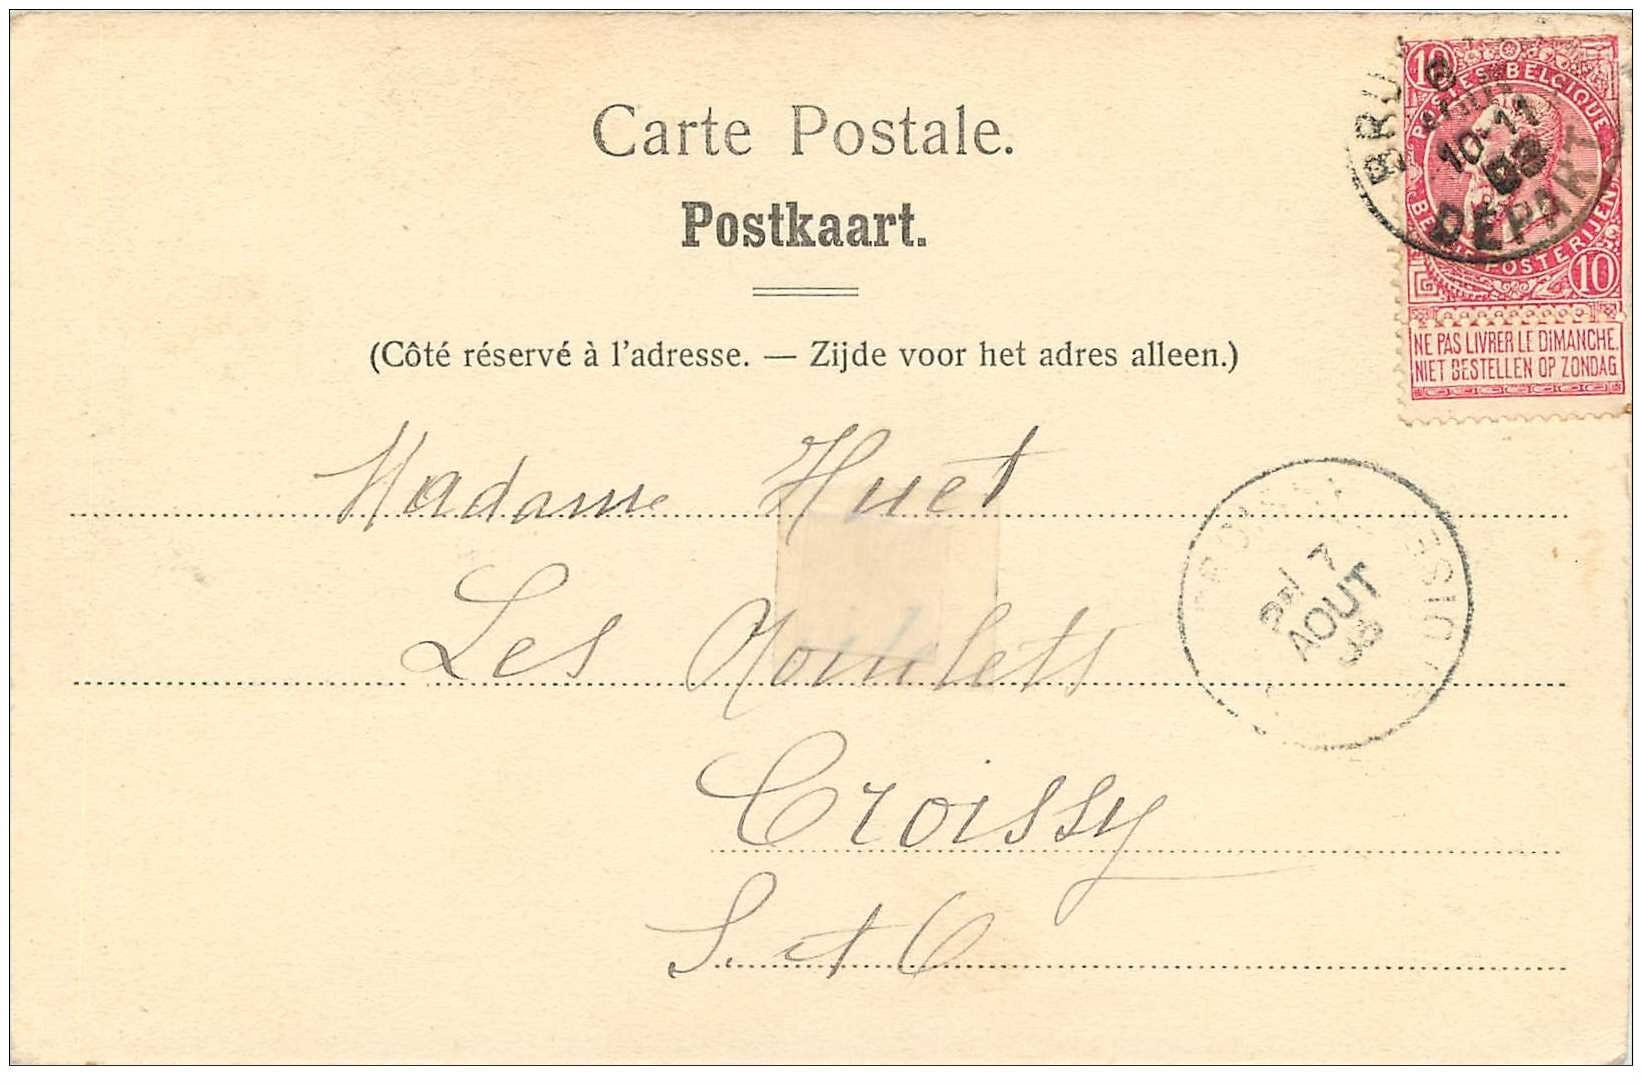 Carte Postale.
Postkaart.
(Côté réservé à l'adresse. — Zijde voor het adres alleen.)
10
POSTES BELGIQUE
10-11
DEPART
POSTERIJEN
10
NE PAS LIVRER LE DIMANCHE.
NIET BESTELLEN OP ZONDAG
Madame Huet
Les
Croissy
S. et O
7
AOUT
98